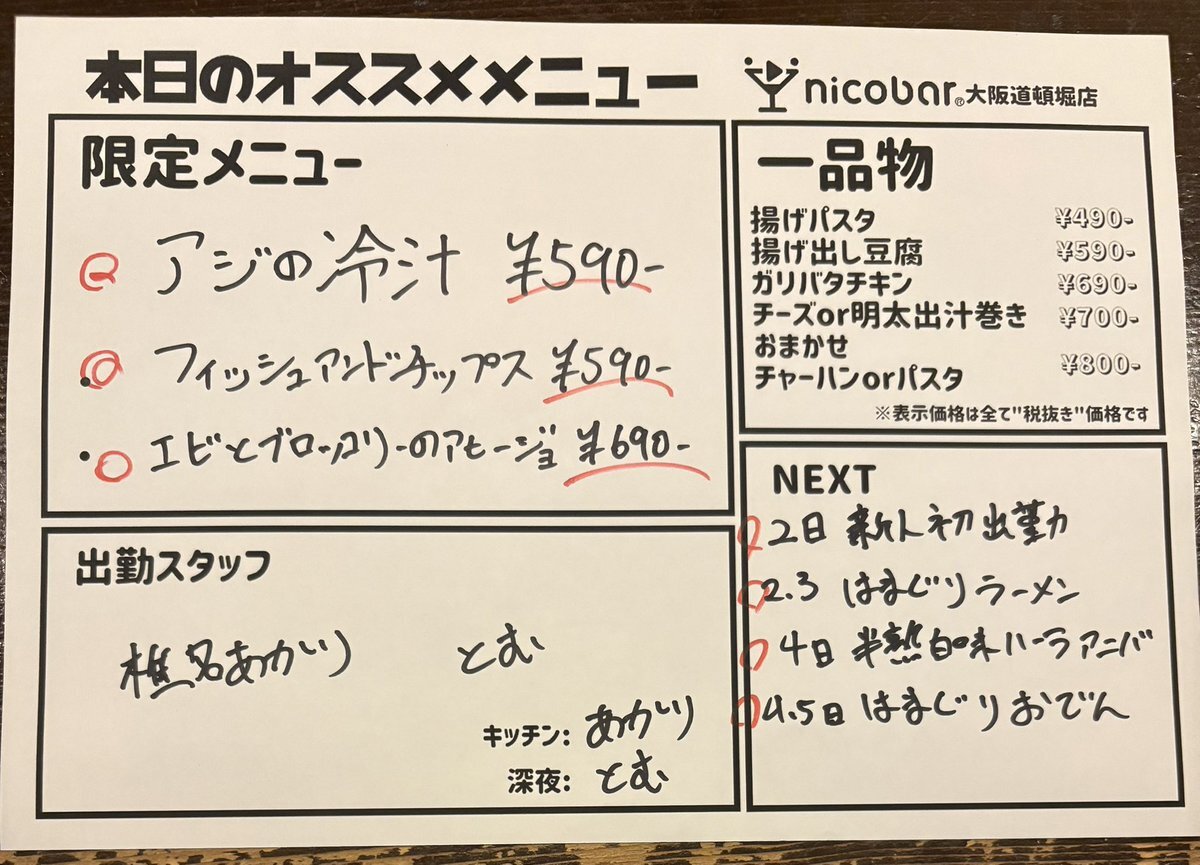 本日のオススメメニュー
nicobar® 大阪道頓堀店
限定メニュー
アジの冷汁 ¥590-
フィッシュアンドチップス ¥590-
エビとブロッコリーのアヒージョ ¥690-
一品物
揚げパスタ ¥490-
揚げ出し豆腐 ¥590-
ガリバタチキン ¥690-
チーズor明太出汁巻き ¥700-
おまかせ
チャーハンorパスタ ¥800-
※表示価格は全て"税抜き"価格です
出勤スタッフ
椎名あかり とむ
キッチン: あかり
深夜: とむ
NEXT
2日 新人初出勤
2.3 はまぐりラーメン
4日 半熟白味ハーラアニバ
4.5日 はまぐりおでん